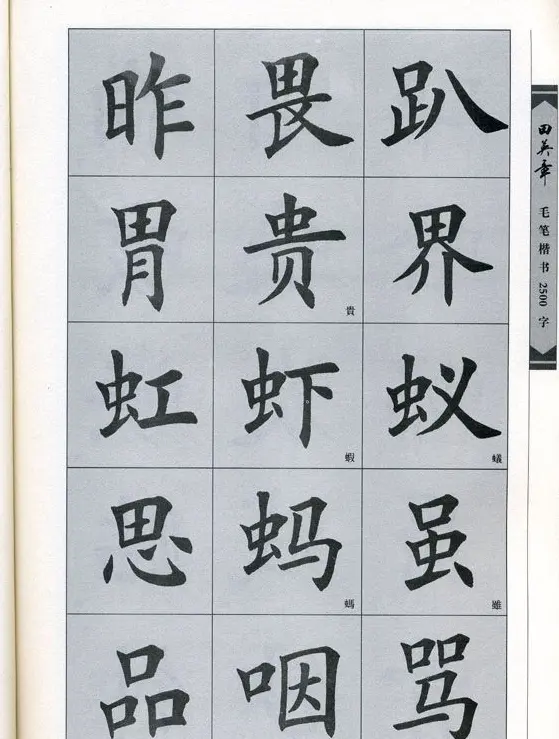 昨 畏 趴
胃 贵 界
貴
虹 虾 蚁
蝦 蟻
思 蚂 虽
螞 雖
品 咽 骂
田英章 毛笔楷书2500字